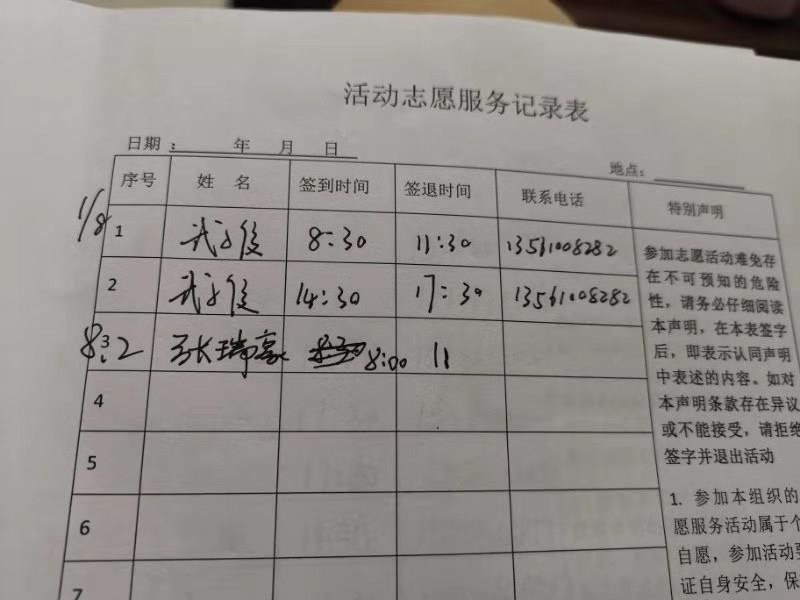 活动志愿服务记录表
日期：　　年　月　日
地点：
序号 姓 名 签到时间 签退时间 联系电话 特别声明
1/8 1 8:30 11:30 13561008282
2 14:30 17:30 13561008282
8.2 3 张瑞豪 8:00 11
4
5
6
7
参加志愿活动难免存
在不可预知的危险
性，请务必仔细阅读
本声明，在本表签字
后，即表示认同声明
中表述的内容。如对
本声明条款存在异议
或不能接受，请拒绝
签字并退出活动
1. 参加本组织的
愿服务活动属于个
自愿，参加活动要
证自身安全，保